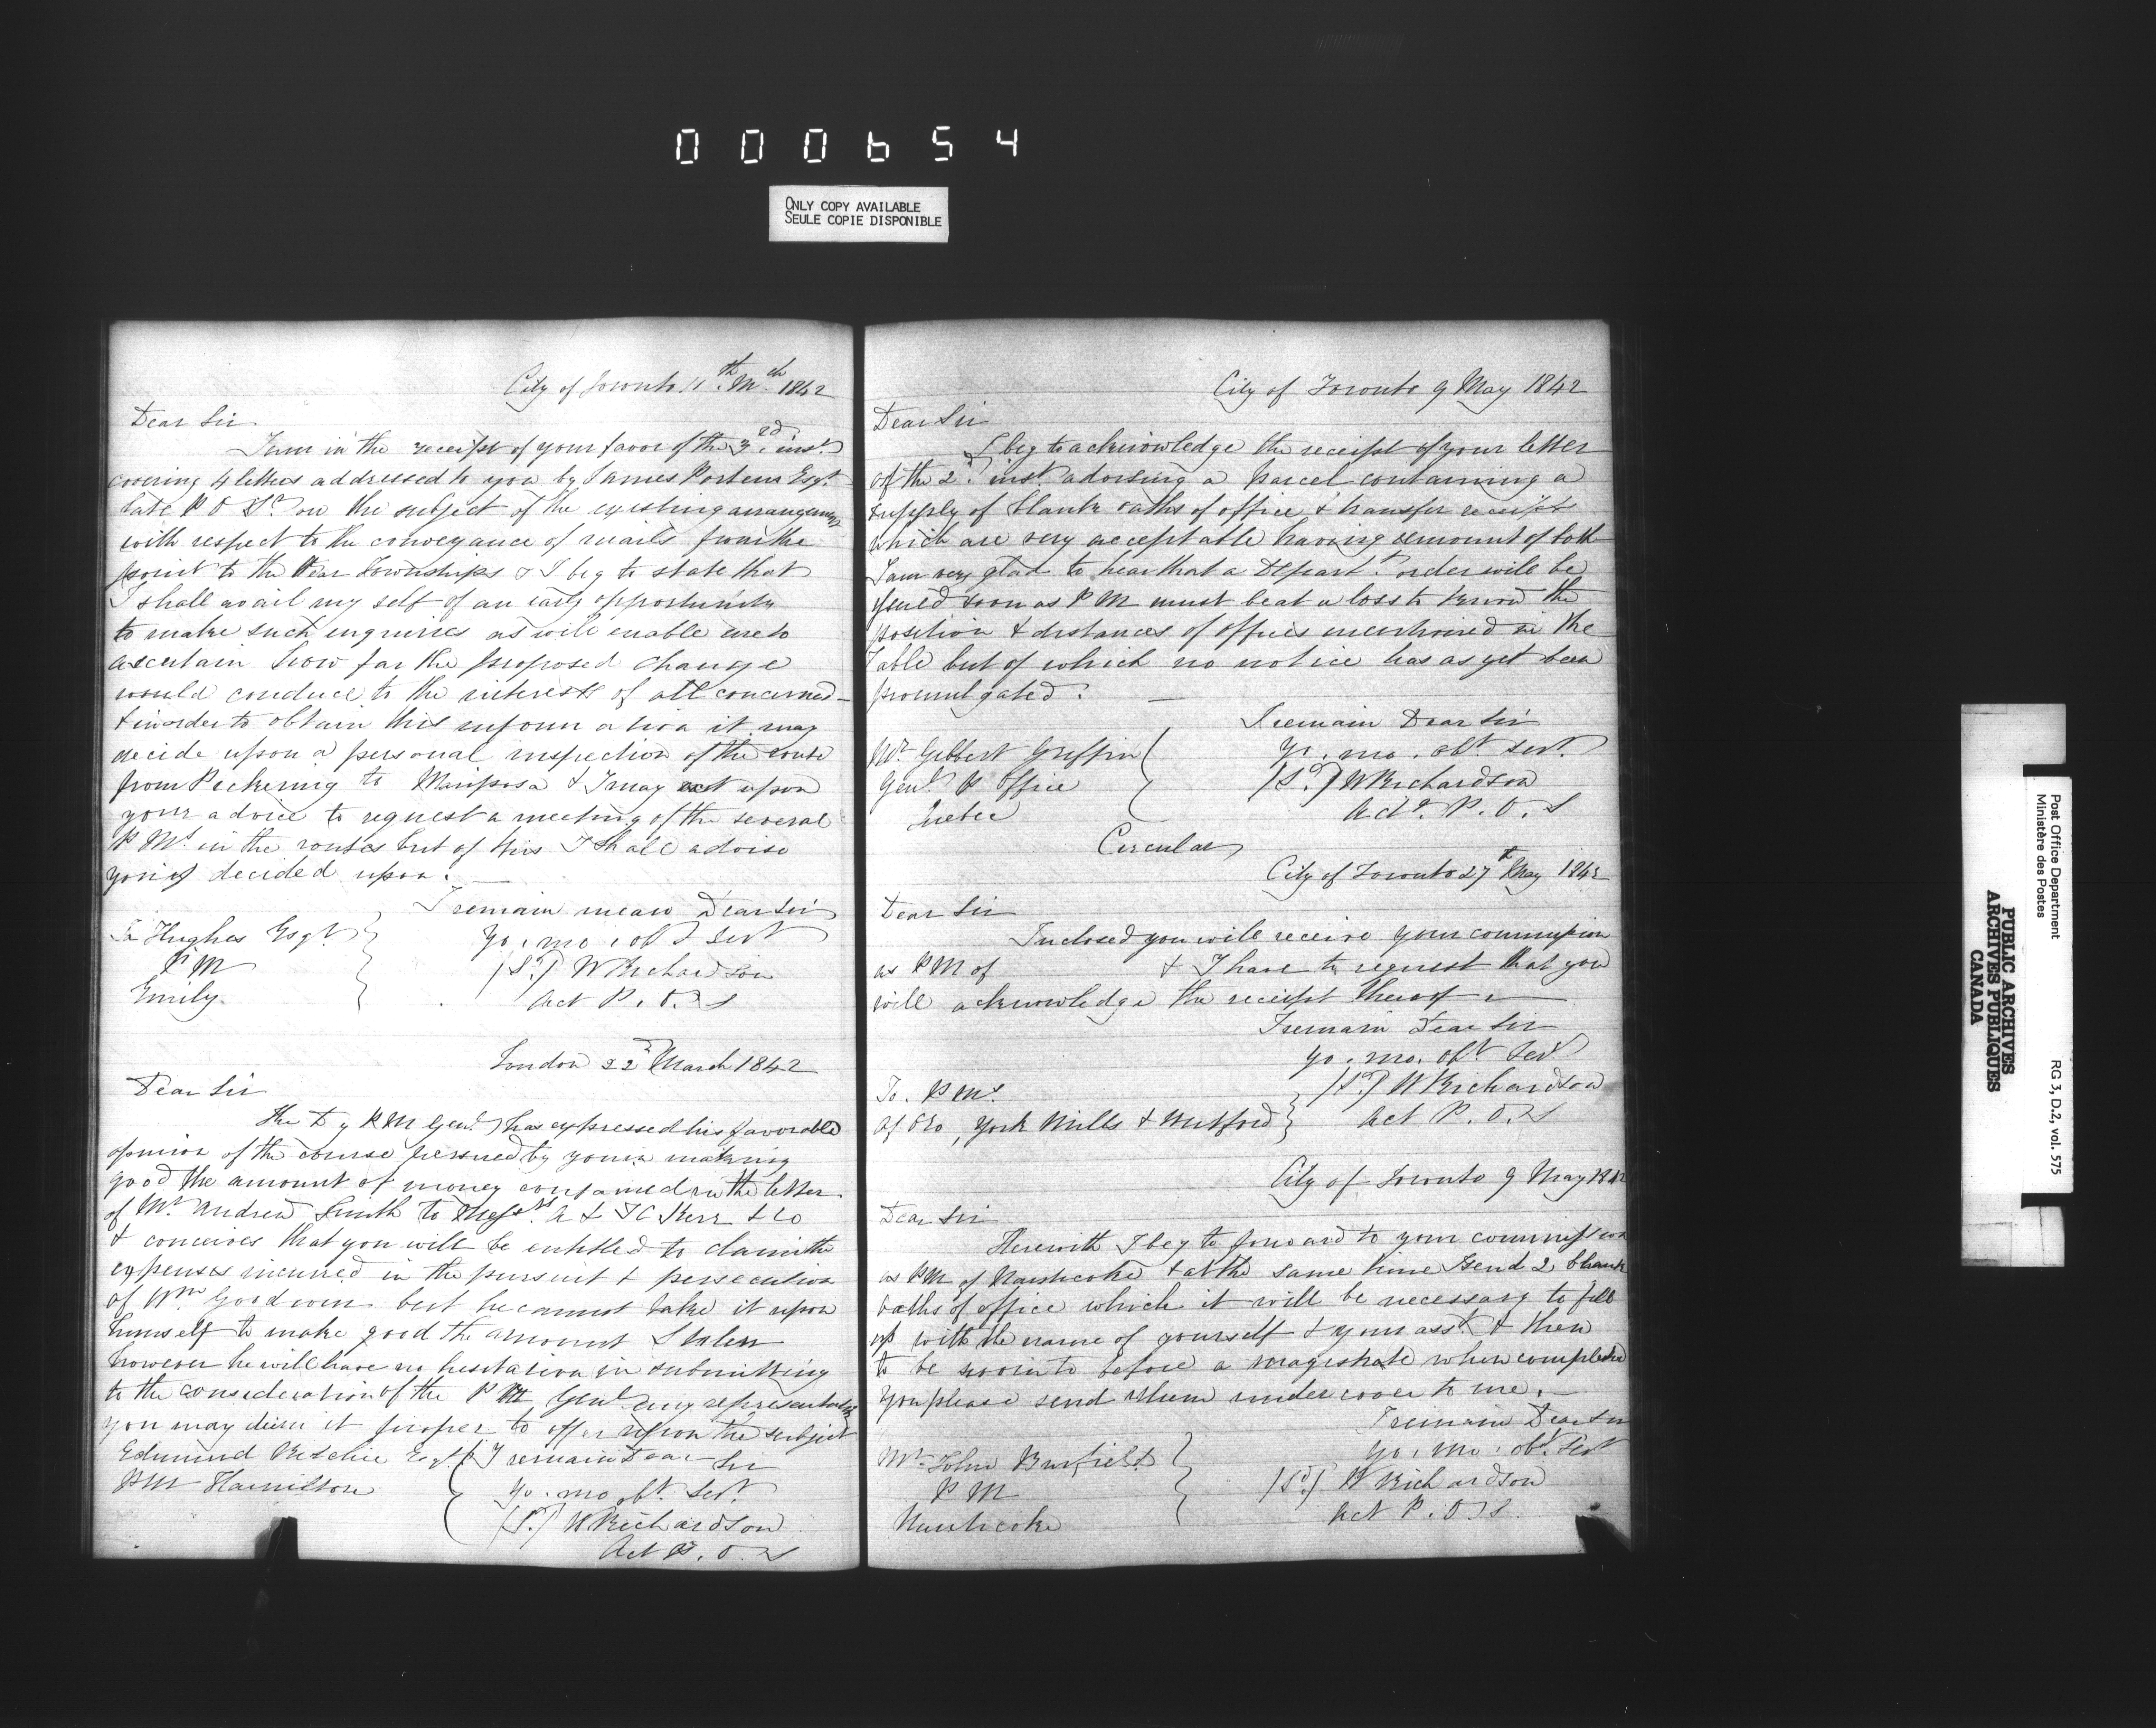 000654
ONLY COPY AVAILABLE
SEULE COPIE DISPONIBLE
City of Toronto 11th Mch 1842
Dear Sir
I am in the receipt of your favor of the 3rd inst
covering 4 letters addressed to you by James Porteus Esqr
late P O Sr on the subject of the existing arrangements
with respect to the conveyance of mails from the
point to the rear Townships & I beg to state that
I shall avail my self of an early opportunity
to make such enquiries as will enable me to
ascertain how far the proposed change
would conduce to the interests of all concerned
& in order to obtain this information it may
decide upon a personal inspection of the route
from Pickering to Mariposa & I may act upon
your advice to request a meeting of the several
P Ms in the routes but of this I shall advise
you if decided upon.
I remain mean Dear Sir
Hughes Esqr
Yo. mo. obt Servt
P M
(Sd) W Richardson
Emily
Act P. O. S
London 22d March 1842
Dear Sir
the Dy P M Genl has expressed his favorable
opinion of the course persued by you in making
good the amount of money contained in the letter
of Mr Andrew Smith to Messrs A & J C Kerr & Co
& conceives that you will be entitled to claim the
expenses incurred in the pursuit & persecution
of Wm Goodwin but he cannot take it upon
himself to make good the amount Stolen
however he will have no hesitation in submitting
to the consideration of the P M Genl any representation
you may deem it proper to offer upon the subject
Edmund Ritchie Esqr
I remain Dear Sir
PM Hamilton
Yo. mo obt Sert.
(Sd) W Richardson
Act P. O. S
City of Toronto 9 May 1842
Dear Sir
I beg to acknowledge the receipt of your letter
of the 2d inst advising a parcel containing a
supply of blank oaths of office & transfer receipts
which are very acceptable having remount of both
I am very glad to hear that a Departt order will be
soon as P M must be at a loss to know the
position & distances of offices mentioned in the
Table but of which no notice has as yet been
promulgated.
I remain Dear Sir
Mr Gibbert Griffin
Yo. mo. obt Servt.
Genl P Office
(Sd) W Richardson
Quebec
Actg. P. O. S
Circular
City of Toronto 27th May 1842
Dear Sir
Inclosed you will receive your commission
as P M of & I have to request that you
will acknowledge the receipt thereof
I remain Dear Sir
Yo. mo. obt Servt
To. P Ms
(Sd) W Richardson
of Oro, York Mills & Mitford
Act P. O. S
City of Toronto 9 May 1842
Dear Sir
Herewith I beg to forward to your commission
as PM of Nanticoke & at the same time I send 2 blank
oaths of office which it will be necessary to fill
up with the name of yourself & your asst & then
to be sworn to before a magistrate when completed
you please send them under cover to me.
I remain Dear Sir
Mr John Burfield
Yo. mo. obt Sert
P M
(Sd) W Richardson
Nanticoke
Act P. O. S.
Post Office Department
Ministère des Postes
RG 3, D.2, vol. 575
PUBLIC ARCHIVES
ARCHIVES PUBLIQUES
CANADA